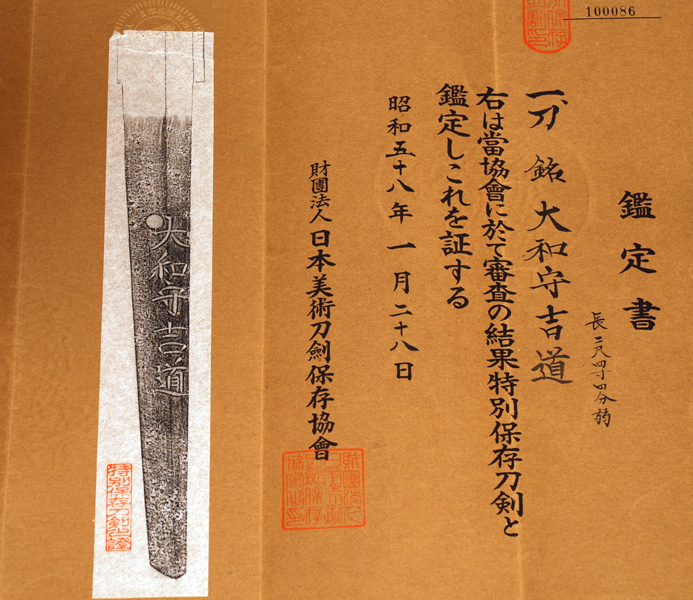 100086
鑑定書
長 二尺四寸四分弱
一、刀 銘 大和守吉道
右は當協會に於て審査の結果特別保存刀剣と
鑑定しこれを証する
昭和五十八年一月二十八日
財團法人日本美術刀劍保存協會
大和守吉道
特別保存刀剣之證